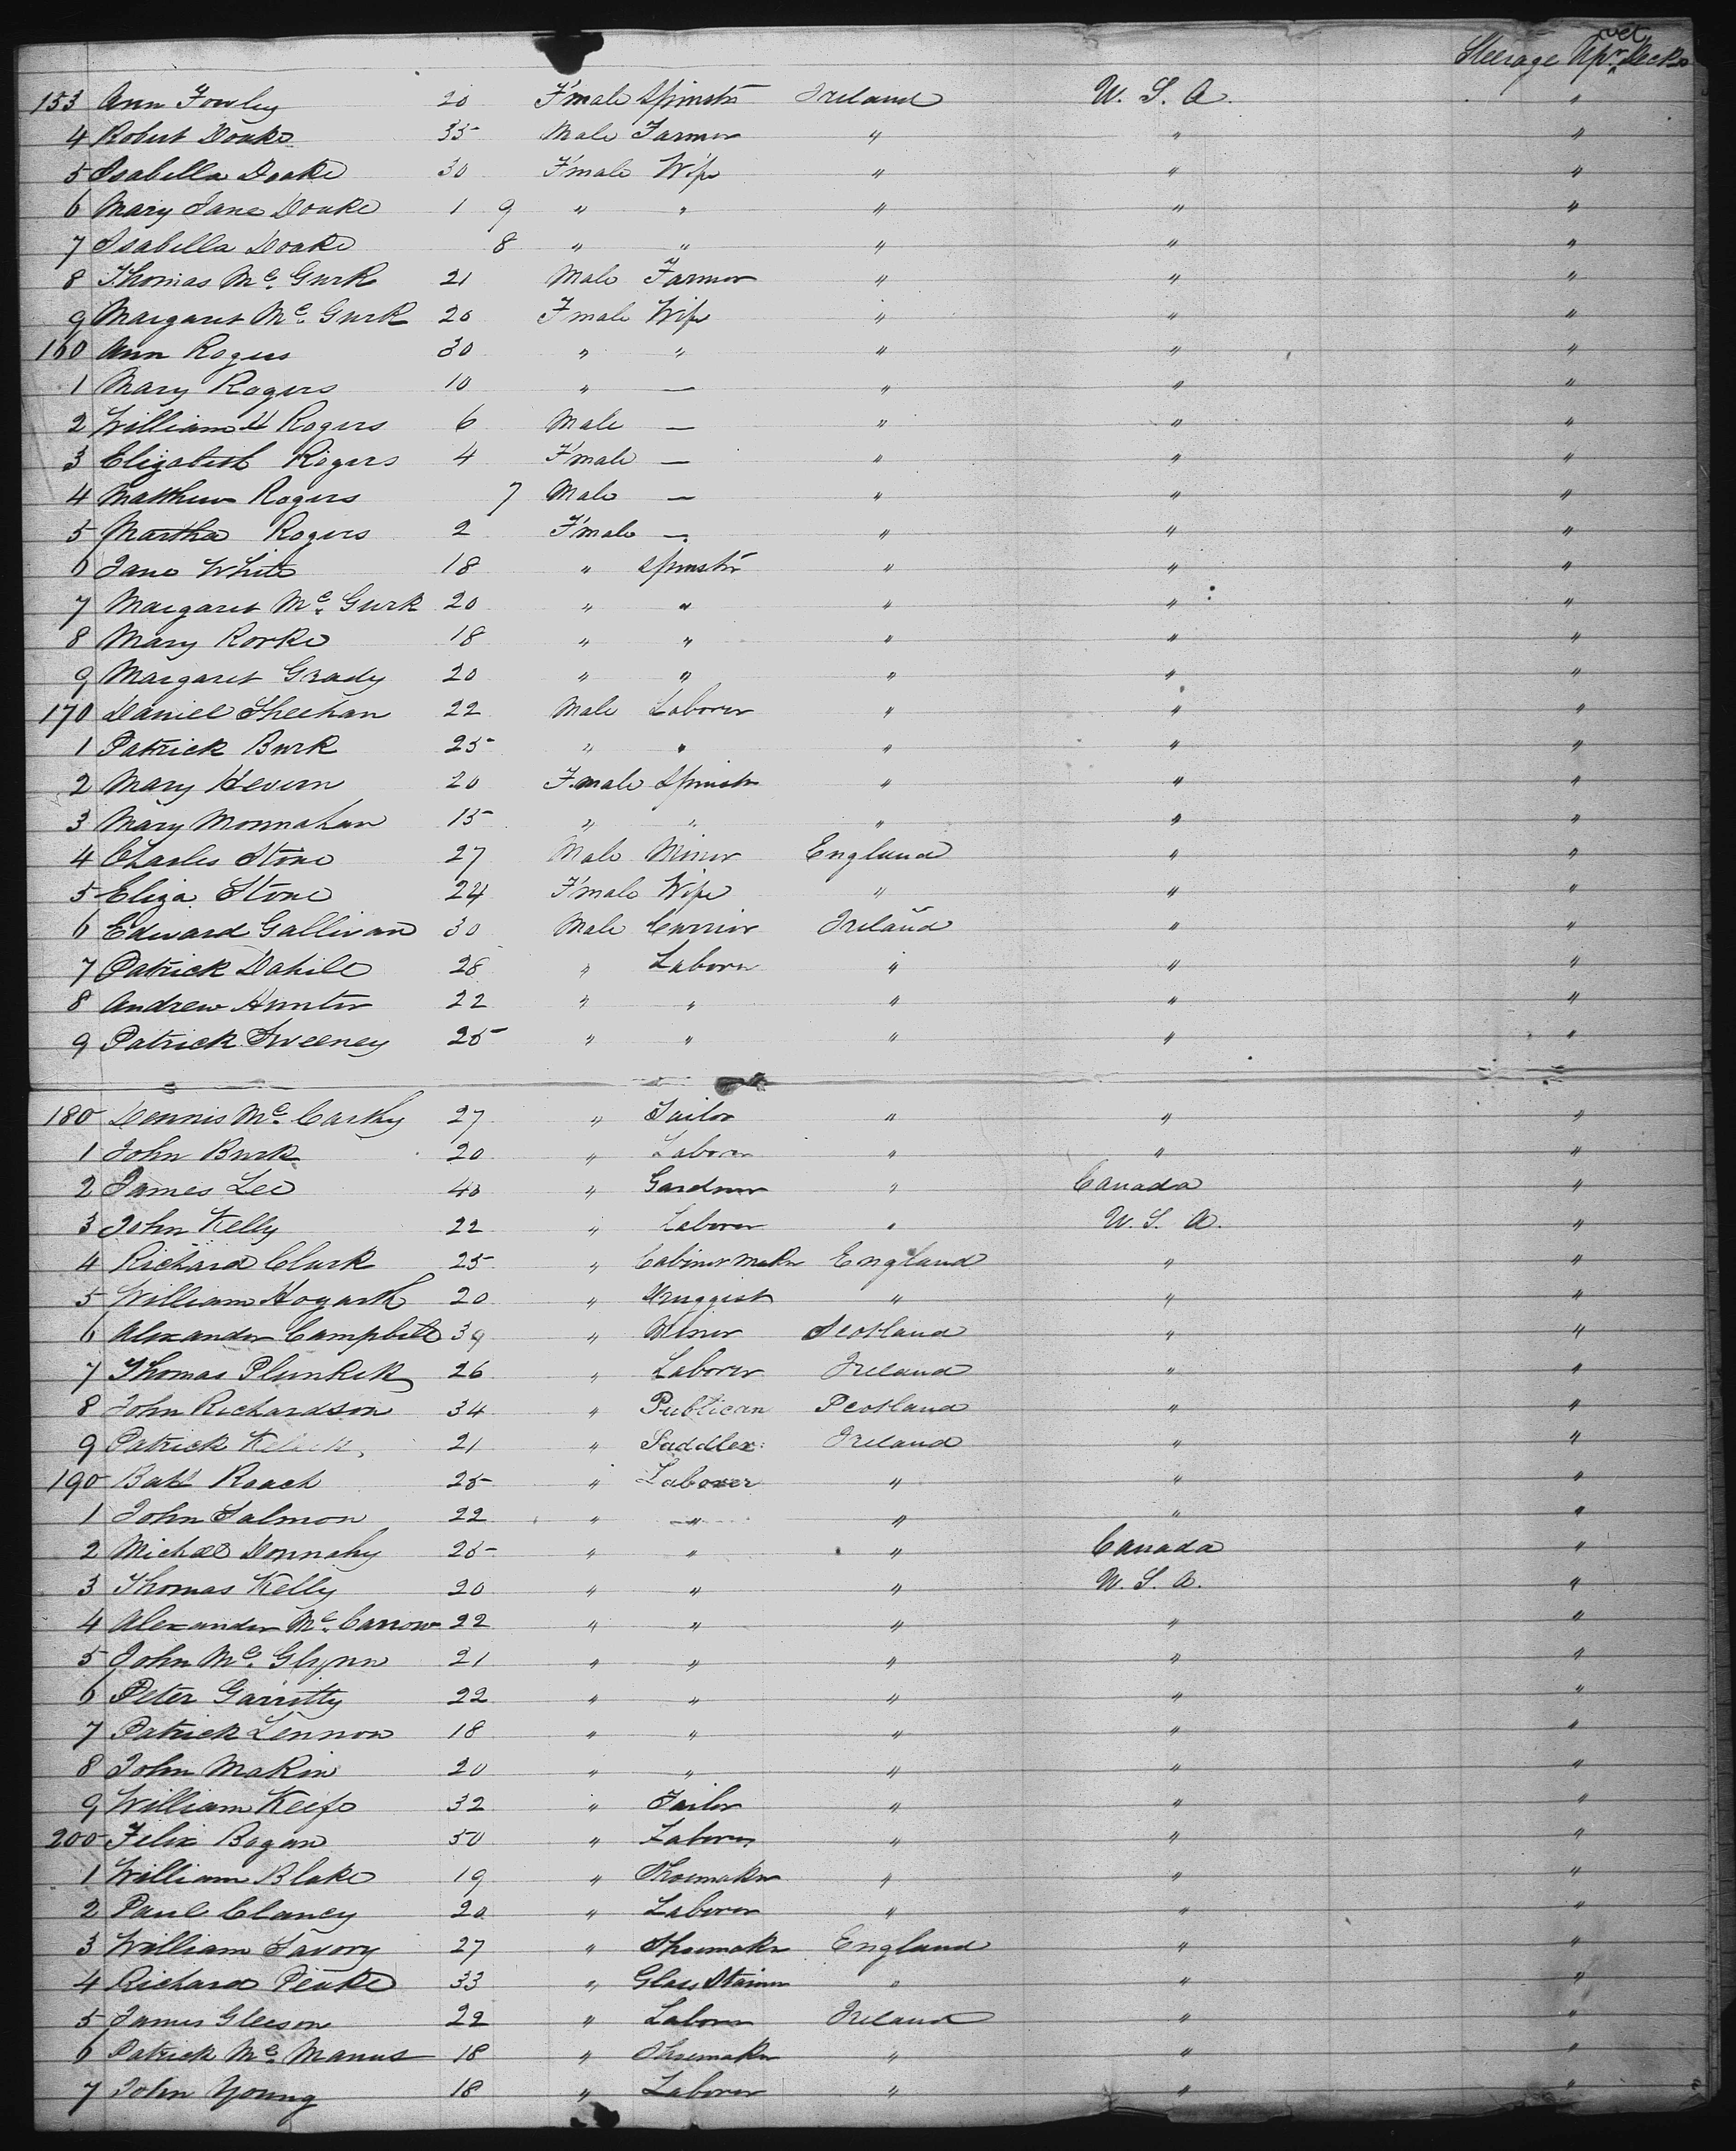 Steerage Upr Decks
153 Ann Fowley 20 F'male Spinstr Ireland U. S. A. "
4 Robert Doake 35 Male Farmer " " "
5 Isabella Doake 30 F'male Wife " " "
6 Mary Jane Doake 1 9 " " " " "
7 Isabella Doake 8 " " " " "
8 Thomas Mc Gurk 21 Male Farmer " " "
9 Margaret Mc Gurk 20 F'male Wife " " "
160 Ann Rogers 30 " " " " "
1 Mary Rogers 10 " — " " "
2 William H Rogers 6 Male — " " "
3 Elizabeth Rogers 4 F'male — " " "
4 Matthew Rogers 7 Male — " " "
5 Martha Rogers 2 F'male — " " "
6 Jane White 18 " Spinstr " " "
7 Margaret Mc Gurk 20 " " " " "
8 Mary Rorke 18 " " " " "
9 Margaret Grady 20 " " " " "
170 Daniel Sheehan 22 Male Laborer " " "
1 Patrick Burk 25 " " " " "
2 Mary Hevern 20 F'male Spinstr " " "
3 Mary Monnahan 15 " " " " "
4 Charles Stone 27 Male Miner England " "
5 Eliza Stone 24 F'male Wife " " "
6 Edward Gallivan 30 Male Currier Ireland " "
7 Patrick Dahill 28 " Laborer " " "
8 Andrew Hunter 22 " " " " "
9 Patrick Sweeney 25 " " " " "
180 Dennis Mc Carthy 27 " Tailor " " "
1 John Burk 20 " Laborer " " "
2 James Lee 40 " Gardner " Canada "
3 John Kelly 22 " Laborer " U. S. A. "
4 Richard Clark 25 " Cabinet Maker England " "
5 William Hogarth 20 " Druggist " " "
6 Alexander Campbell 39 " Miner Scotland " "
7 Thomas Plunkett 26 " Laborer Ireland " "
8 John Richardson 34 " Publican Scotland " "
9 Patrick 21 " Saddler Ireland " "
190 Batt Roach 25 " Laborer " " "
1 John Salmon 22 " " " " "
2 Michael Donnahy 25 " " " Canada "
3 Thomas Kelly 20 " " " U. S. A. "
4 Alexander Mc Carrow 22 " " " " "
5 John Mc Glynn 21 " " " " "
6 Peter Garritty 22 " " " " "
7 Patrick Lennon 18 " " " " "
8 John Makin 20 " " " " "
9 William Keife 32 " Tailor " " "
200 Felix Bogan 50 " Laborer " " "
1 William Blake 19 " Shoemaker " " "
2 Paul Clancy 20 " Laborer " " "
3 William Savory 27 " Shoemaker England " "
4 Richard Peake 33 " Glass Stainer " " "
5 James Gleeson 22 " Laborer Ireland " "
6 Patrick Mc Manus 18 " Shoemaker " " "
7 John Young 18 " Laborer " " "